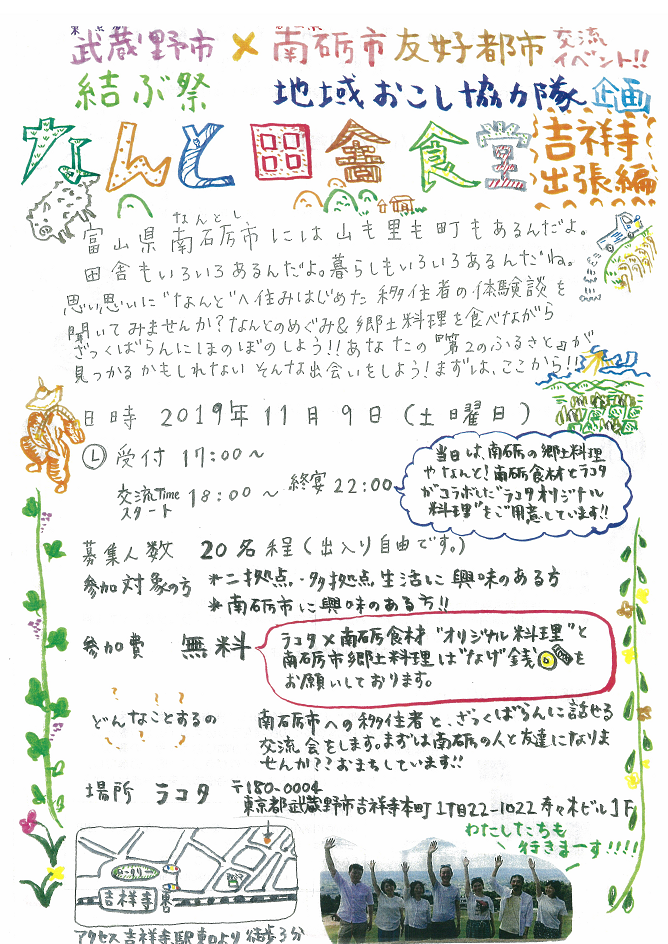 武蔵野市×南砺市友好都市交流イベント!!
結ぶ祭 地域おこし協力隊企画
なんと田舎食堂 吉祥寺出張編
なんとし
富山県南砺市には山も里も町もあるんだよ。
田舎もいろいろあるんだよ。暮らしもいろいろあるんだね。
思い思いに"なんと"へ住みはじめた移住者の体験談を
聞いてみませんか?なんとのめぐみ&郷土料理を食べながら
ざっくばらんにほのぼのしよう!!あなたの『第2のふるさと』が
見つかるかもしれないそんな出会いをしよう!まずは、ここから!!
日時 2019年11月9日(土曜日)
受付 17:00~
交流Timeスタート 18:00~ 終宴 22:00
当日は、南砺の郷土料理
やなんと!南砺食材とラコタ
がコラボした"ラコタオリジナル
料理"をご用意しています!!
募集人数 20名程(出入り自由です。)
参加対象の方 *二拠点・多拠点生活に興味のある方
*南砺市に興味のある方!!
参加費 無料
ラコタ×南砺食材"オリジナル料理"と
南砺市郷土料理は"なげ銭"を
お願いしております。
どんなことするの
南砺市への移住者と、ざっくばらんに話せる
交流会をします。まずは南砺の人と友達になりま
せんか??おまちしています!!
場所 ラコタ 〒180-0004
東京都武蔵野市吉祥寺本町1丁目22-10 寿々木ビル1F
わたしたちも
行きまーす!!!!
吉祥寺
アクセス 吉祥寺駅東口より徒歩3分